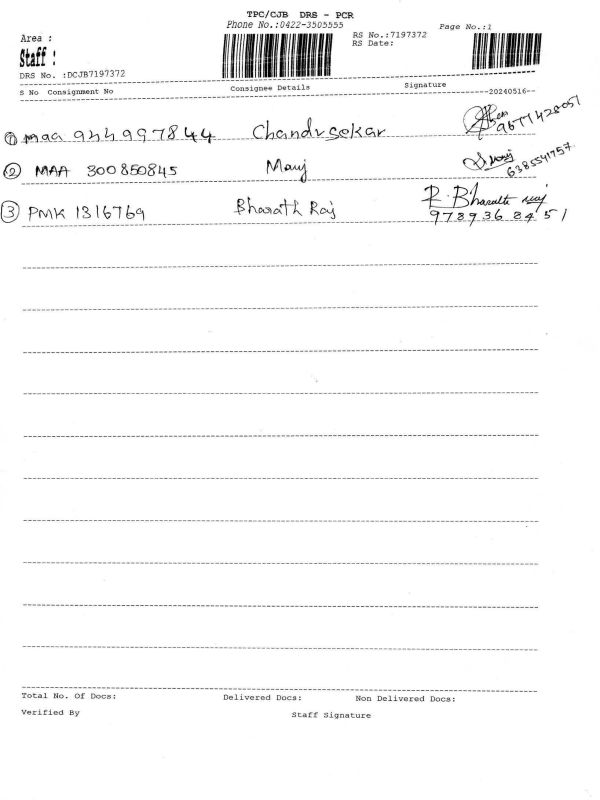 TPC/CJB DRS - PCR
Phone No.:0422-3505555
Page No.:1
Area :
RS No.:7197372
Staff :
RS Date:
DRS No. :DCJB7197372
S No Consignment No Consignee Details Signature
20240516
1 maa 944997844 Chandrsekar 9677428051
2 MAA 300850845 Manj 6385541757
3 PMK 1316769 Bharath Raj R. Bharath Raj
9789368451
Total No. Of Docs: Delivered Docs: Non Delivered Docs:
Verified By Staff Signature